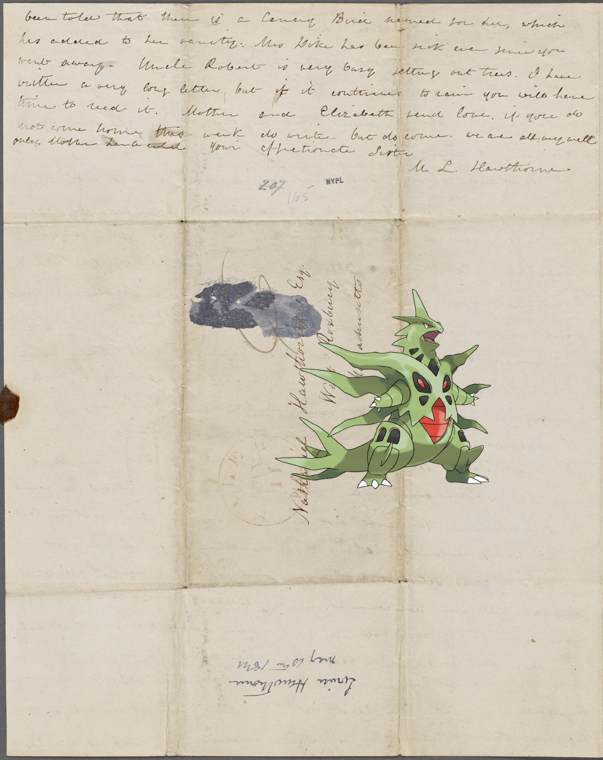 been told that there is a Canary Bird named for her, which
has added to her vanity. Mrs Dike has been sick ever since you
went away. Uncle Robert is very busy setting out trees. I have
written a very long letter, but if it continues to rain you will have
time to read it. Mother and Elizabeth send love. if you do
not come home this week do write but do come. we are all very well
only Mother has a cold your affectionate Sister
M L. Hawthorne.
207
165
NYPL
Nathaniel Hawthorne Esq.
West Roxbury
Massachusetts
Louisa Hawthorne
May 10th 1841